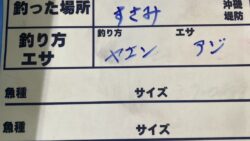 釣った場所 すさみ 沖磯
堤防
釣り方 釣り方 エサ
エサ ヤエン アジ
魚種 サイズ
魚種 サイズ